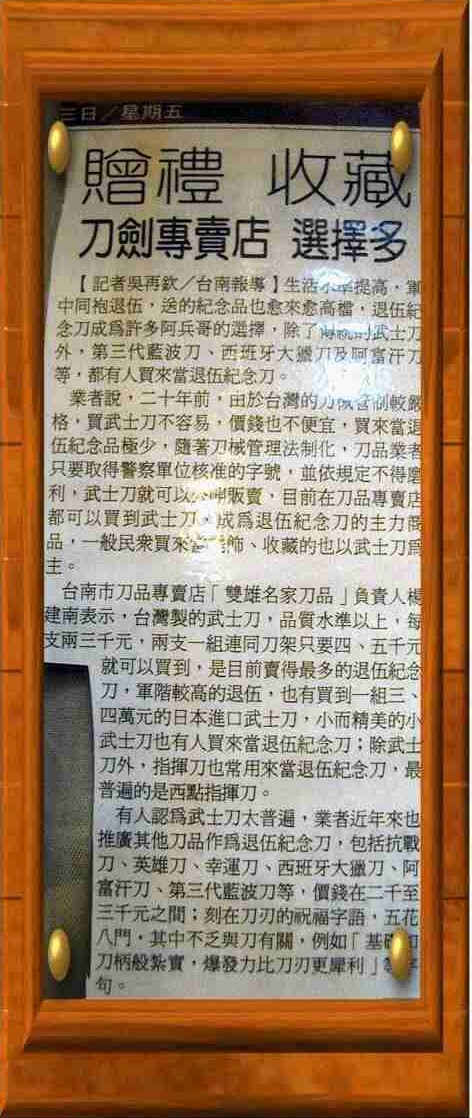 三日／星期五
贈禮 收藏
刀劍專賣店 選擇多
【記者吳再欽／台南報導】生活水準提高，軍
中同袍退伍，送的紀念品也愈來愈高檔，退伍紀
念刀成爲許多阿兵哥的選擇，除了傳統的武士刀
外，第三代藍波刀、西班牙大獵刀及阿富汗刀
等，都有人買來當退伍紀念刀。
業者說，二十年前，由於台灣的刀械管制較嚴
格，買武士刀不容易，價錢也不便宜，買來當退
伍紀念品極少，隨著刀械管理法制化，刀品業者
只要取得警察單位核准的字號，並依規定不得磨
利，武士刀就可以公開販賣，目前在刀品專賣店
都可以買到武士刀，成爲退伍紀念刀的主力商
品，一般民衆買來當 飾、收藏的也以武士刀爲
主。
台南市刀品專賣店「雙雄名家刀品」負責人楊
建南表示，台灣製的武士刀，品質水準以上，每
支兩三千元，兩支一組連同刀架只要四、五千元
就可以買到，是目前賣得最多的退伍紀念
刀，軍階較高的退伍，也有買到一組三、
四萬元的日本進口武士刀，小而精美的小
武士刀也有人買來當退伍紀念刀；除武士
刀外，指揮刀也常用來當退伍紀念刀，最
普遍的是西點指揮刀。
有人認爲武士刀太普遍，業者近年來也
推廣其他刀品作爲退伍紀念刀，包括抗戰
刀、英雄刀、幸運刀、西班牙大獵刀、阿
富汗刀、第三代藍波刀等，價錢在二千至
三千元之間；刻在刀刃的祝福字語，五花
八門，其中不乏與刀有關，例如「基礎如
刀柄般紮實，爆發力比刀刃更犀利」等字
句。